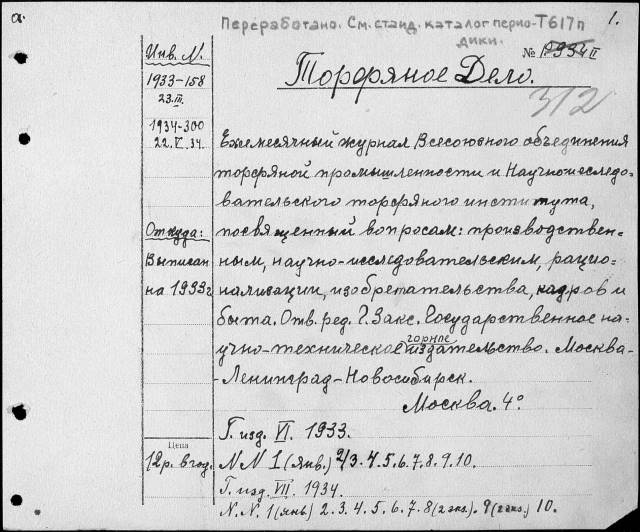 a.
Переработано. См. станд. каталог перио- Т617п
дики.
1.
№ 1934 II
Торфяное Дело.
312
Инв. N.
1933-158
23.III.
1934-300
22.V.34.
Ежемесячный журнал Всесоюзного объединения
торфяной промышленности и Научноисследо-
вательского торфяного института,
посвященный вопросам: производствен-
ным, научно-исследовательским, рацио-
нализации, изобретательства, кадров и
быта. Отв. ред. Г. Закс. Государственное на-
учно-техническое горное издательство. Москва-
-Ленинград-Новосибирск.
Москва. 4°
Откуда:
Выписан
на 1933г
Г. изд. VI. 1933.
Цена
12 р. в год.
N N 1 (янв.) 2/3. 4. 5. 6. 7. 8. 9. 10.
Г. изд. VII. 1934.
N. N. 1 (янв) 2. 3. 4. 5. 6. 7. 8 (2 экз.). 9 (2 экз.) 10.